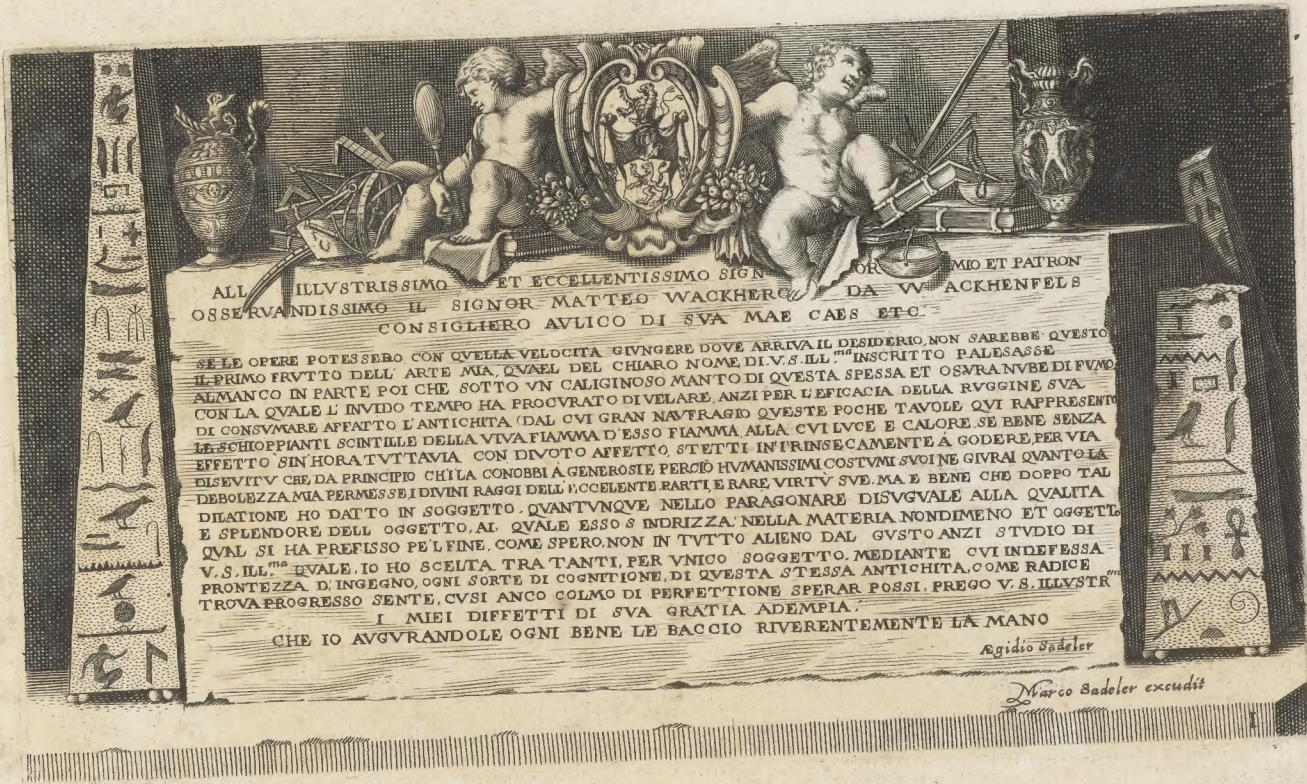 ALL ILLVSTRISSIMO ET ECCELLENTISSIMO SIGN OR MIO ET PATRON
OSSERVANDISSIMO IL SIGNOR MATTEO WACKHERO DA WACKHENFELS
CONSIGLIERO AVLICO DI SVA MAE CAES ETC.
SE LE OPERE POTESSERO CON QVELLA VELOCITA GIVNGERE DOVE ARRIVA IL DESIDERIO, NON SAREBBE QVESTO
IL PRIMO FRVTTO DELL' ARTE MIA, QVAEL DEL CHIARO NOME DI. V. S. ILL.ma INSCRITTO PALESASSE
ALMANCO IN PARTE POI CHE SOTTO VN CALIGINOSO MANTO DI QVESTA SPESSA ET OSVRA NVBE DI FVMO,
CON LA QVALE L' INVIDO TEMPO HA PROCVRATO DI VELARE, ANZI PER L'EFICACIA DELLA RVGGINE SVA
DI CONSVMARE AFFATTO L'ANTICHITA (DAL CVI GRAN NAVFRAGIO QVESTE POCHE TAVOLE QVI RAPPRESENTO
LE SCHIOPPIANTI SCINTILLE DELLA VIVA FIAMMA D'ESSO FIAMMA, ALLA CVI LVCE E CALORE, SE BENE SENZA
EFFETTO SIN'HORA TVTTAVIA CON DIVOTO AFFETTO, STETTI INTRINSECAMENTE A GODERE, PER VIA
DISEVITV CHE DA PRINCIPIO CH'I LA CONOBBI A GENEROSI E PERCIÒ HVMANISSIMI COSTVMI SVOI NE GIVRAI QVANTO LA
DEBOLEZZA MIA PERMESSE I DIVINI RAGGI DELL' ECCELENTE PARTI, E RARE VIRTV SVE. MA E BENE CHE DOPPO TAL
DILATIONE HO DATTO IN SOGGETTO. QVANTVNQVE NELLO PARAGONARE DISVGVALE ALLA QVALITA
E SPLENDORE DELL OGGETTO, AL QVALE ESSO S INDRIZZA, NELLA MATERIA NONDIMENO ET OGGETTO
QVAL SI HA PREFISSO PE'L FINE, COME SPERO, NON IN TVTTO ALIENO DAL GVSTO ANZI STVDIO DI
V. S. ILL.ma QVALE, IO HO SCELTA TRA TANTI, PER VNICO SOGGETTO. MEDIANTE CVI INDEFESSA
PRONTEZZA D'INGEGNO, OGNI SORTE DI COGNITIONE, DI QVESTA STESSA ANTICHITA, COME RADICE
TROVA PROGRESSO SENTE, CVSI ANCO COLMO DI PERFETTIONE SPERAR POSSI, PREGO V. S. ILLVSTR
I MIEI DIFFETTI DI SVA GRATIA ADEMPIA.
CHE IO AVGVRANDOLE OGNI BENE LE BACCIO RIVERENTEMENTE LA MANO
Ægidio Sadeler
Marco Sadeler excudit
I